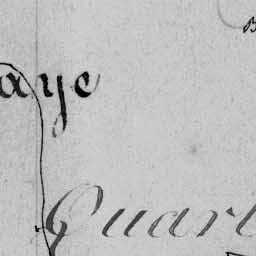 aye
Quart